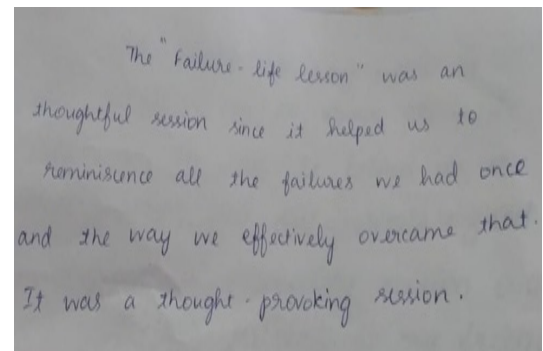 The "Failure - life lesson" was an
thoughtful session since it helped us to
reminiscence all the failures we had once
and the way we effectively overcame that.
It was a thought - provoking session.